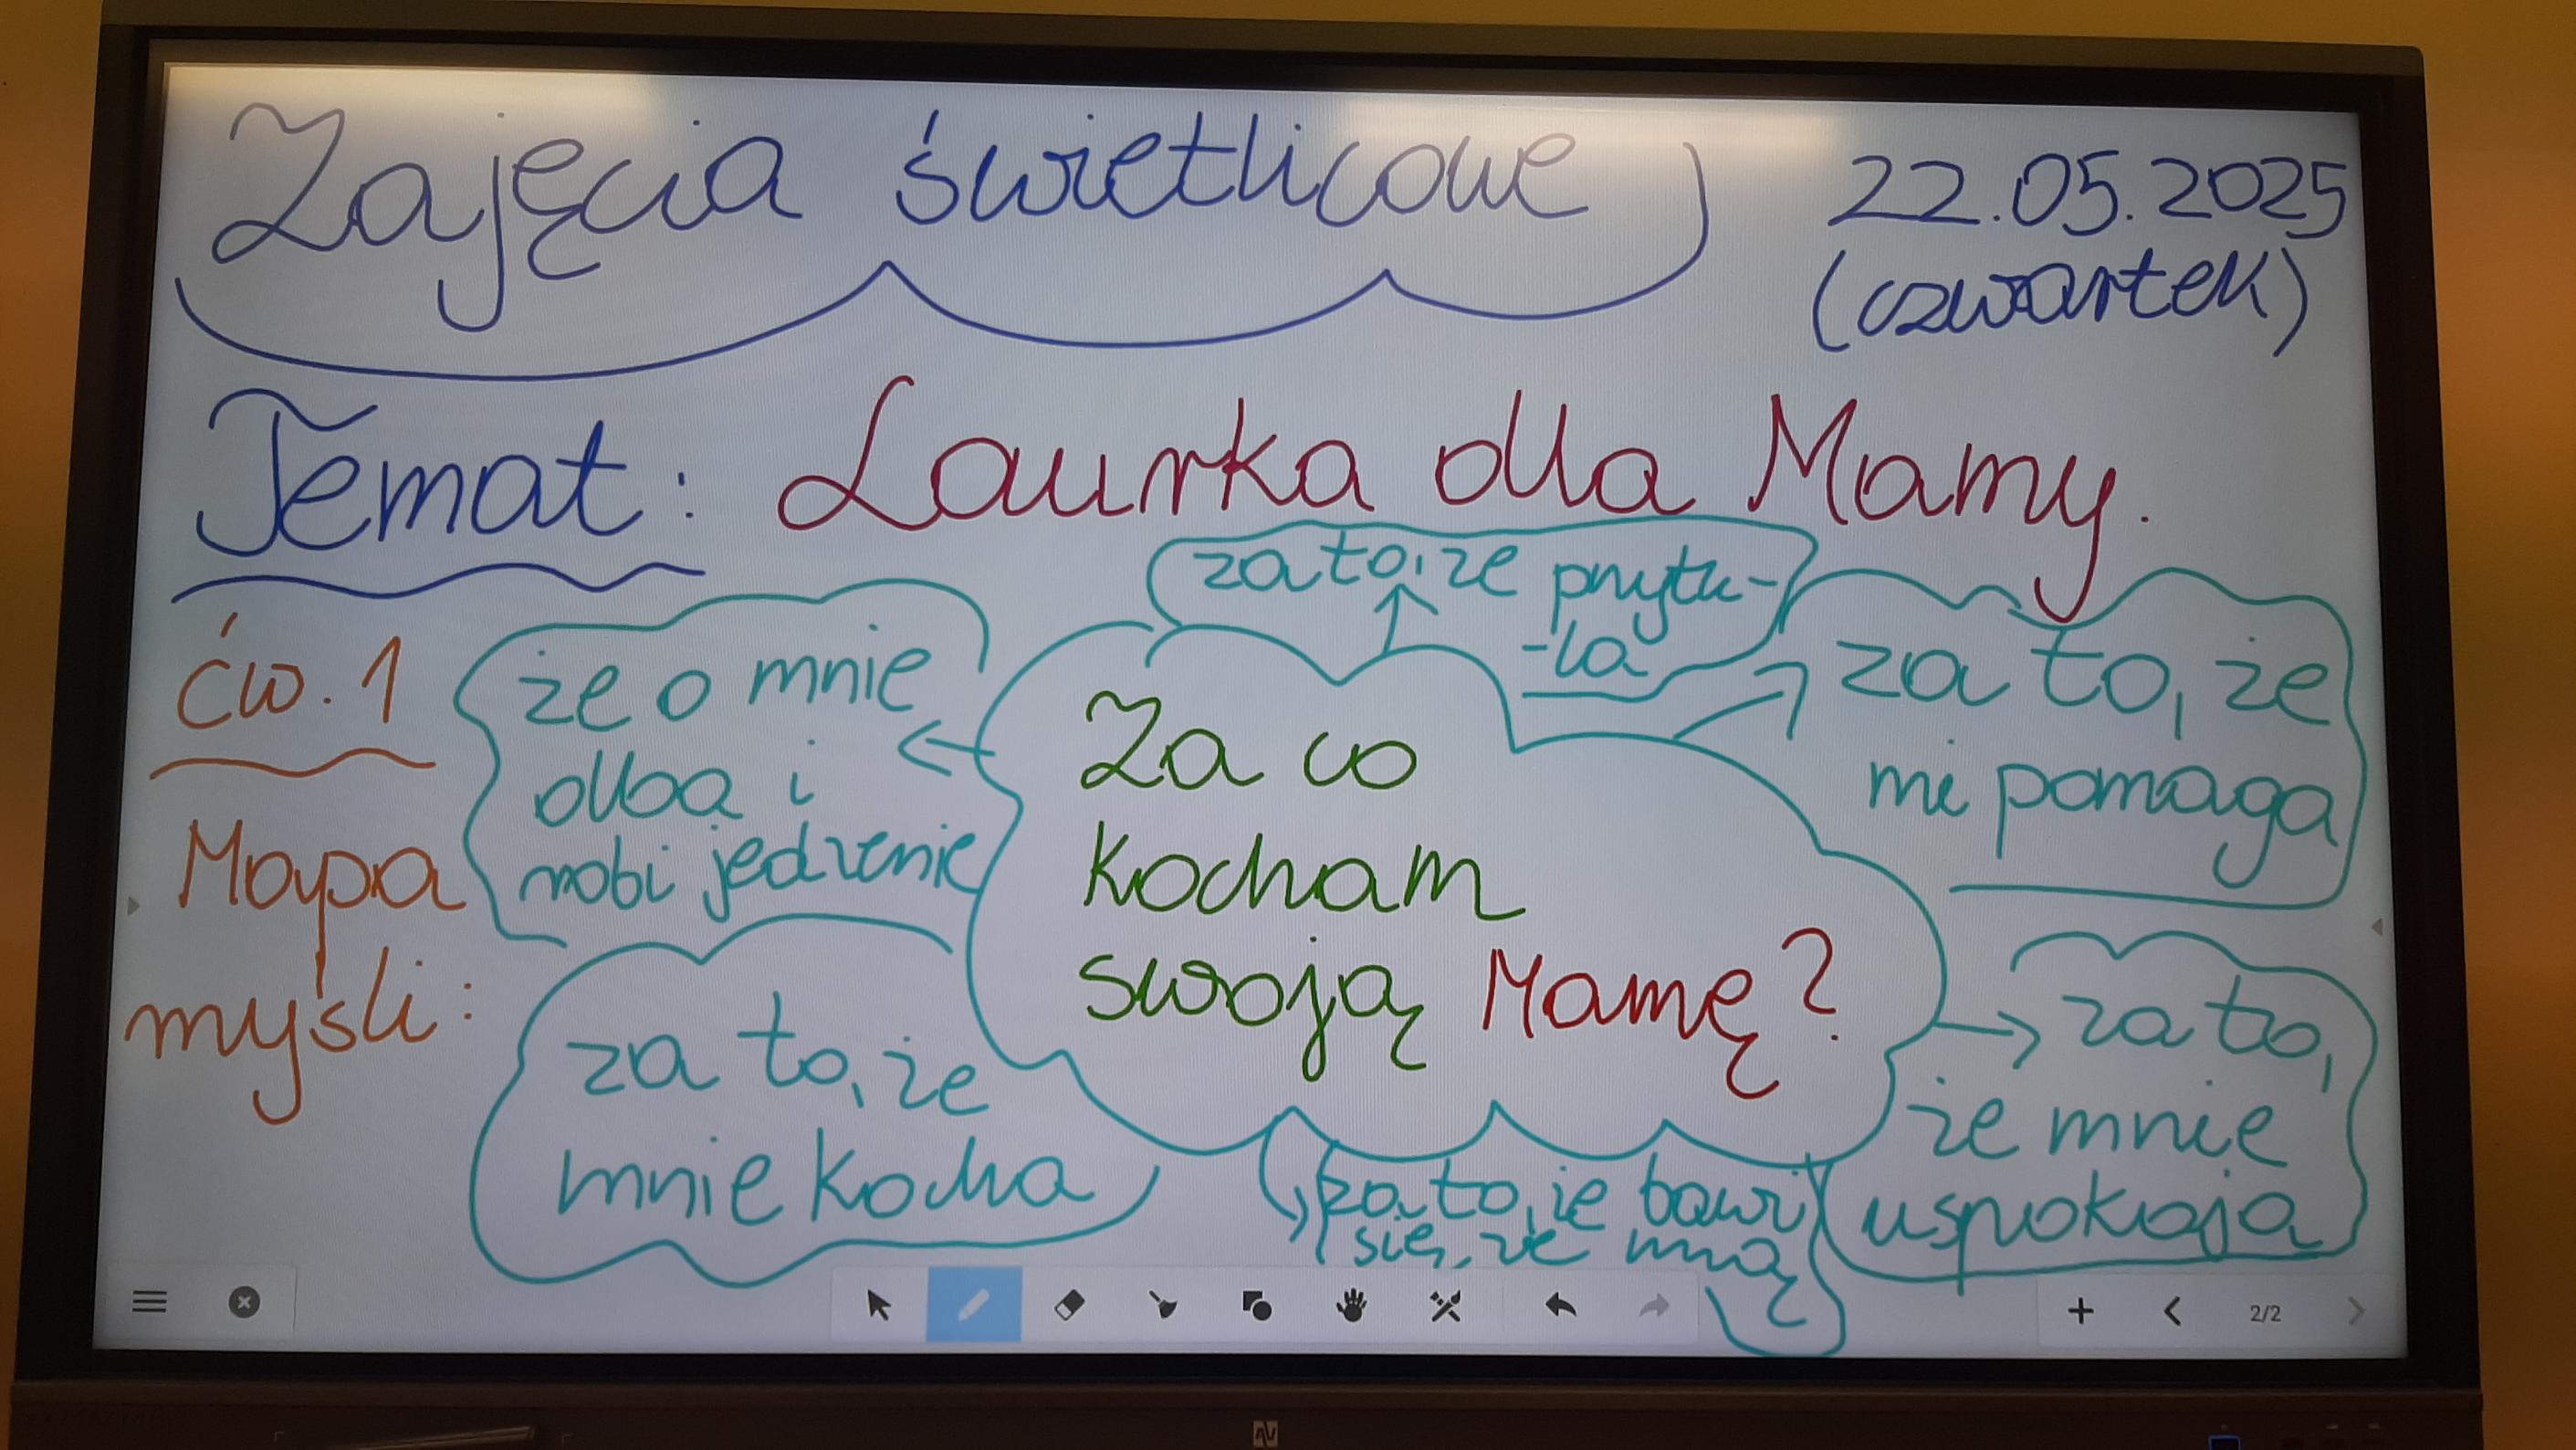 Zajęcia świetlicowe
22.05.2025
(czwartek)
Temat: Laurka dla Mamy.
ćw. 1
Mapa
myśli:
Za co
kocham
swoją Mamę?
za to, że przytu-
-la
za to, że
mi pomaga
za to,
że mnie
uspokaja
za to, że bawi
się ze mną
za to, że
mnie kocha
że o mnie
dba i
robi jedzenie
2/2